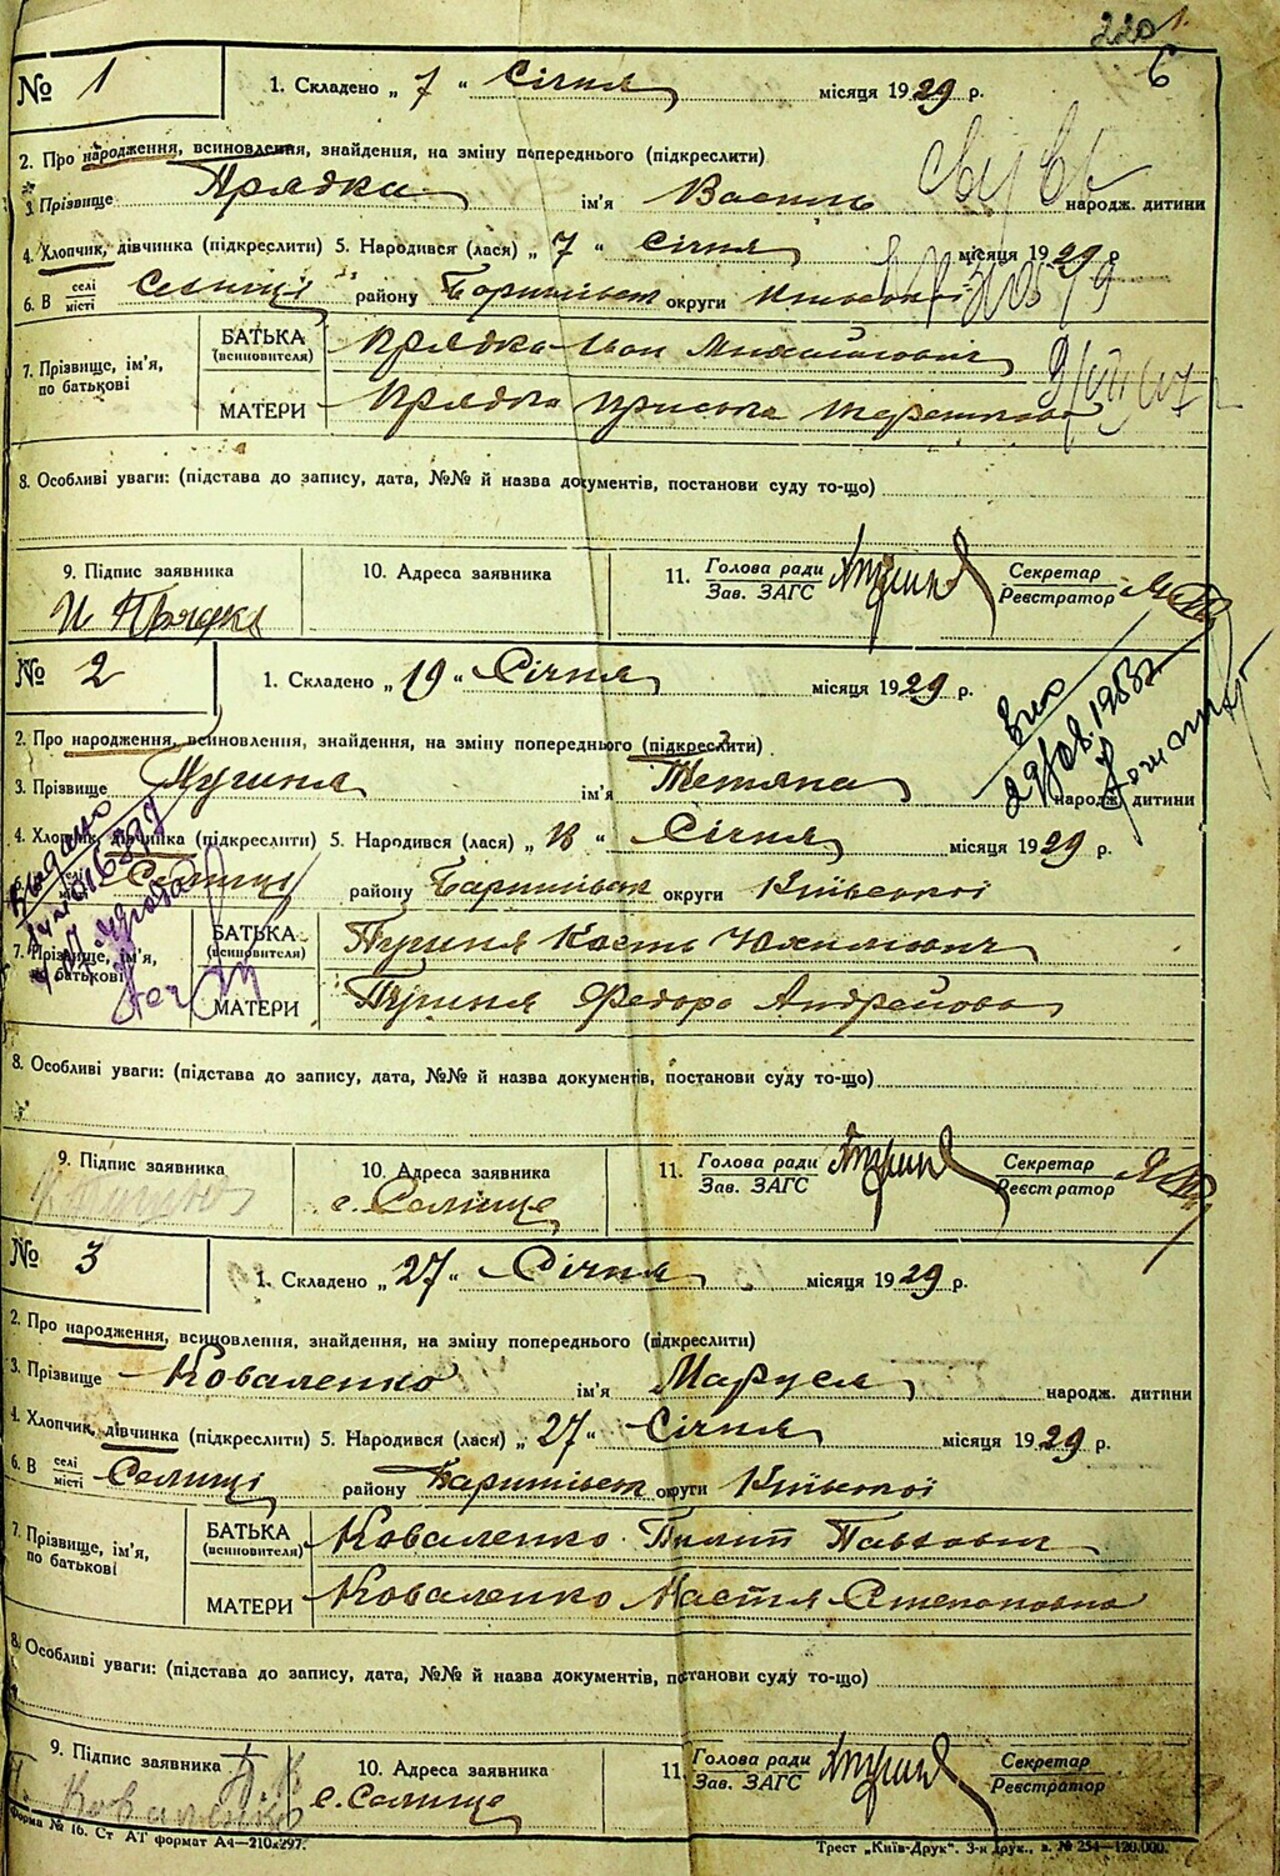 220 1.
6
№ 1
1. Складено „ 7 “ Січня місяця 1929 р.
2. Про народження, всиновлення, знайдення, на зміну попереднього (підкреслити)
3. Прізвище Прядка ім'я Василь народж. дитини
4. Хлопчик, дівчинка (підкреслити) 5. Народився (лася) „ 7 “ Січня місяця 1929 р
6. В селі/місті Селищі району Баришівськ округи Київської
7. Прізвище, ім'я, по батькові
БАТЬКА (всиновителя) Прядка Іван Михайлович
МАТЕРИ Прядка Приська
8. Особливі уваги: (підстава до запису, дата, №№ й назва документів, постанови суду то-що)
9. Підпис заявника 10. Адреса заявника 11. Голова ради/Зав. ЗАГС Секретар/Реєстратор
И Прядка
№ 2
1. Складено „ 19 “ Січня місяця 1929 р.
2. Про народження, всиновлення, знайдення, на зміну попереднього (підкреслити)
3. Прізвище Пугиня ім'я Тетяна народж. дитини
4. Хлопчик, дівчинка (підкреслити) 5. Народився (лася) „ 18 “ Січня місяця 1929 р.
Селищі району Баришівськ округи Київської
7. Прізвище, ім'я, по батькові
БАТЬКА (всиновителя) Пугиня Кость Юхимович
МАТЕРИ Пугиня Федора Андрейова
8. Особливі уваги: (підстава до запису, дата, №№ й назва документів, постанови суду то-що)
9. Підпис заявника 10. Адреса заявника 11. Голова ради/Зав. ЗАГС Секретар/Реєстратор
с. Селище
№ 3
1. Складено „ 27 “ Січня місяця 1929 р.
2. Про народження, всиновлення, знайдення, на зміну попереднього (підкреслити)
3. Прізвище Коваленко ім'я Маруся народж. дитини
4. Хлопчик, дівчинка (підкреслити) 5. Народився (лася) „ 27 “ Січня місяця 1929 р.
6. В селі/місті Селищі району Баришівськ округи Київської
7. Прізвище, ім'я, по батькові
БАТЬКА (всиновителя) Коваленко Пилип Павлович
МАТЕРИ Коваленко Настя Степановна
8. Особливі уваги: (підстава до запису, дата, №№ й назва документів, постанови суду то-що)
9. Підпис заявника 10. Адреса заявника 11. Голова ради/Зав. ЗАГС Секретар/Реєстратор
Коваленко с. Селище
Форма № 16. Ст АТ формат А4—210х297.
Трест „Київ-Друк“. 3-я друк., в. № 254—120.000.